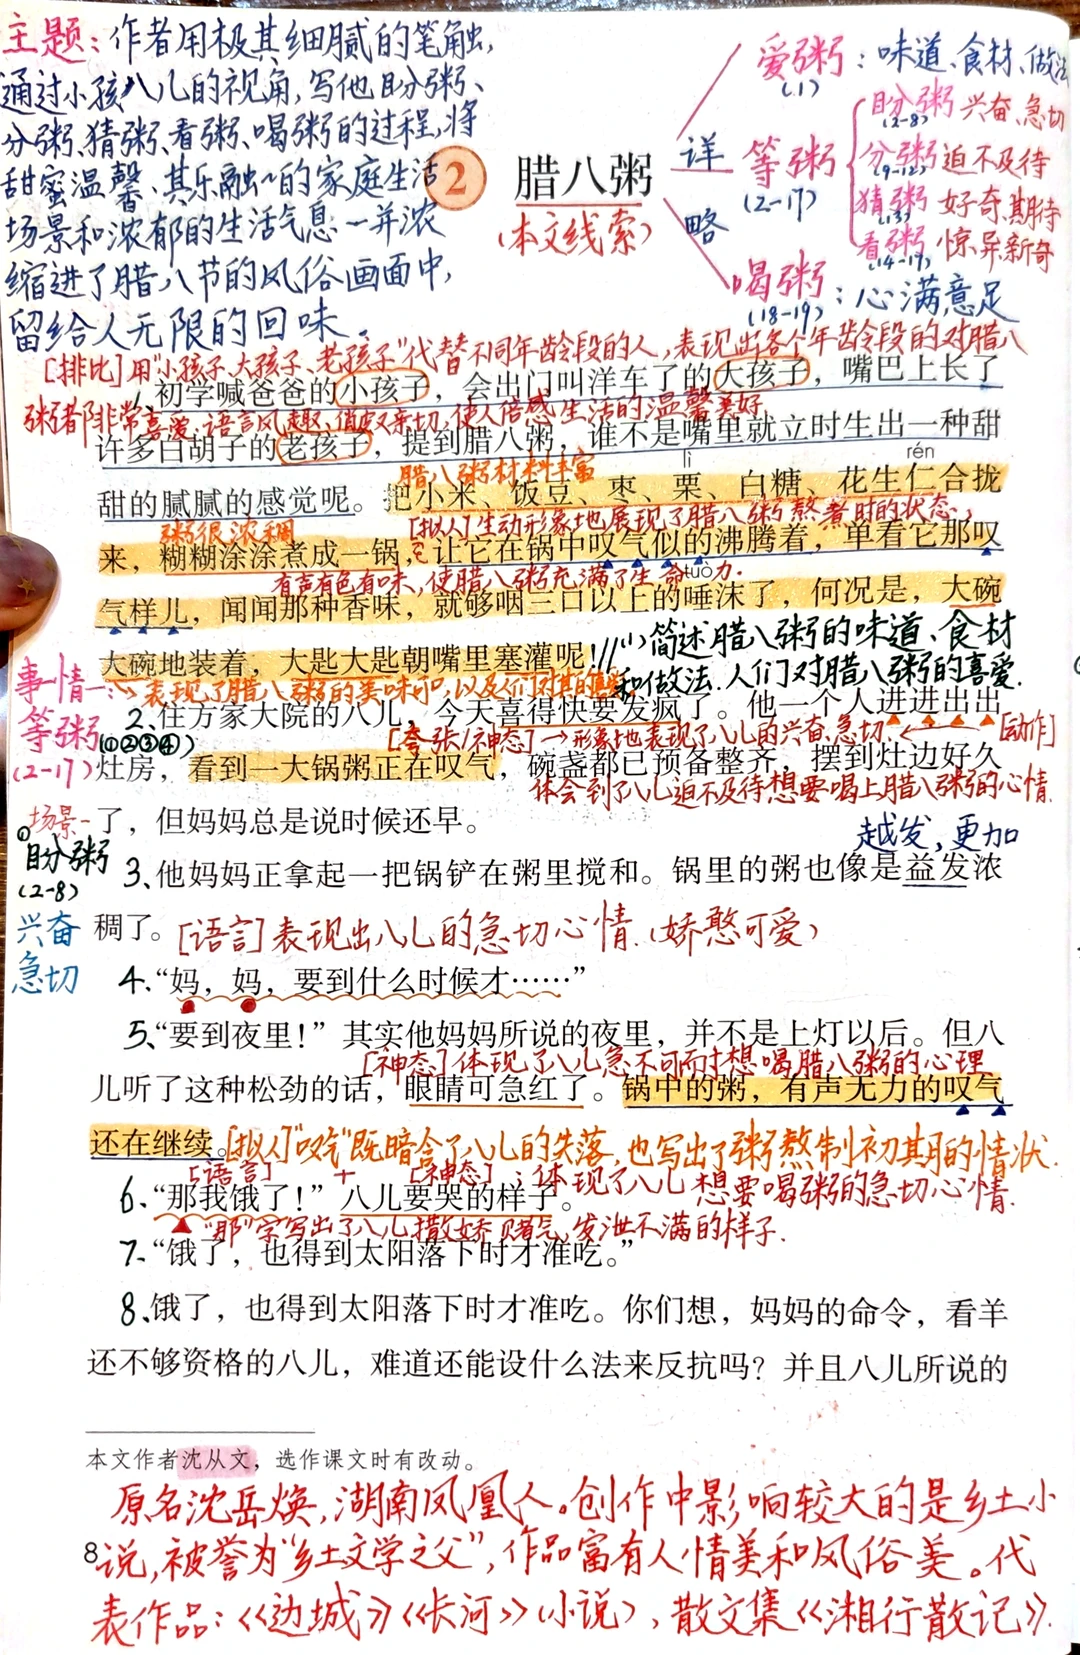 主题：作者用极其细腻的笔触，
通过小孩八儿的视角，写他盼粥、
分粥、猜粥、看粥、喝粥的过程，将
甜蜜温馨、其乐融融的家庭生活
场景和浓郁的生活气息一并浓
缩进了腊八节的风俗画面中，
留给人无限的回味。
2 腊八粥
（本文线索）
详
略
爱粥：味道、食材、做法
（1）
等粥
（2-17）
盼粥 兴奋、急切
（2-8）
分粥 迫不及待
（9-12）
猜粥 好奇、期待
（13）
看粥 惊异、新奇
（14-17）
喝粥：心满意足
（18-19）
[排比]用“小孩子、大孩子、老孩子”代替不同年龄段的人，表现出各个年龄段的对腊八
1、初学喊爸爸的小孩子，会出门叫洋车了的大孩子，嘴巴上长了
粥都非常喜爱，语言风趣、俏皮亲切，使人倍感生活的温馨美好
许多白胡子的老孩子，提到腊八粥，谁不是嘴里就立时生出一种甜
腊八粥材料丰富
lì
rén
甜的腻腻的感觉呢。把小米、饭豆、枣、栗、白糖、花生仁合拢
粥很浓稠
[拟人]生动形象地展现了腊八粥熬煮时的状态，
来，糊糊涂涂煮成一锅，让它在锅中叹气似的沸腾着，单看它那叹
有声有色有味，使腊八粥充满了生命力.
tuò
气样儿，闻闻那种香味，就够咽三口以上的唾沫了，何况是，大碗
(1)简述腊八粥的味道、食材
大碗地装着，大匙大匙朝嘴里塞灌呢！//
和做法.人们对腊八粥的喜爱.
表现了腊八粥的美味可口，以及人们对其的喜爱
事情一：
等粥
（①②③④）
（2-17）
2、住方家大院的八儿，今天喜得快要发疯了。他一个人进进出出
[夸张/神态]→形象地表现了八儿的兴奋、急切. [动作]
灶房，看到一大锅粥正在叹气，碗盏都已预备整齐，摆到灶边好久
体会到了八儿迫不及待想要喝上腊八粥的心情.
场景一
了，但妈妈总是说时候还早。
①盼粥
（2-8）
兴奋
急切
越发，更加
3、他妈妈正拿起一把锅铲在粥里搅和。锅里的粥也像是益发浓
稠了。
[语言]表现出八儿的急切心情.（娇憨可爱）
4、“妈，妈，要到什么时候才……”
5、“要到夜里！”其实他妈妈所说的夜里，并不是上灯以后。但八
[神态]体现了八儿急不可耐想喝腊八粥的心理
儿听了这种松劲的话，眼睛可急红了。锅中的粥，有声无力的叹气
还在继续。
[拟人]“叹气”既暗含了八儿的失落，也写出了粥熬制初期的情状.
[语言] + [神态]：体现了八儿想要喝粥的急切心情.
6、“那我饿了！”八儿要哭的样子。
“那”字写出了八儿撒娇赌气，发泄不满的样子.
7、“饿了，也得到太阳落下时才准吃。”
8、饿了，也得到太阳落下时才准吃。你们想，妈妈的命令，看羊
还不够资格的八儿，难道还能设什么法来反抗吗？并且八儿所说的
本文作者沈从文，选作课文时有改动。
原名沈岳焕，湖南凤凰人。创作中影响较大的是乡土小
说，被誉为“乡土文学之父”，作品富有人情美和风俗美。代
表作品：《边城》《长河》（小说），散文集《湘行散记》.
8